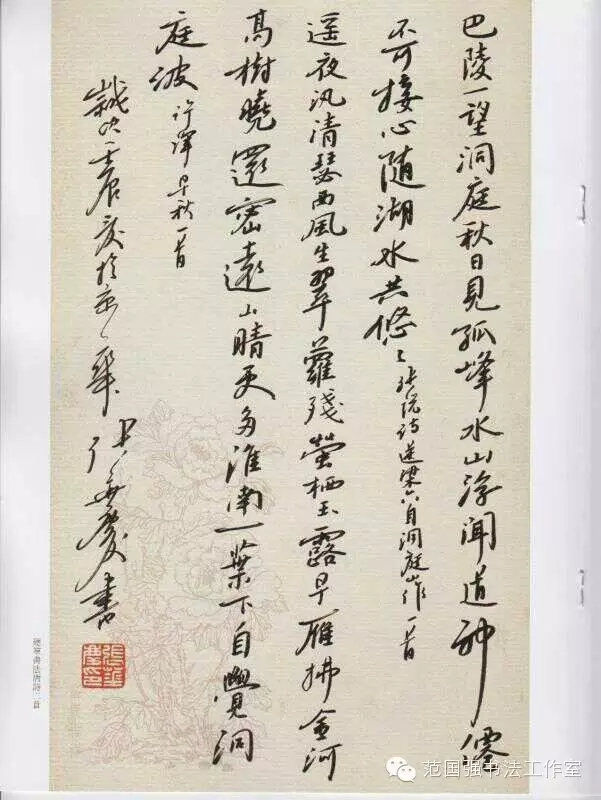 巴陵一望洞庭秋日見孤峰水山浮聞道神僊
不可接心随湖水共悠〻张説诗送梁六自洞庭山作一首
遥夜汎清瑟西風生翠蘿殘螢栖玉露早雁拂金河
高樹曉還密遠山晴更多淮南一葉下自覺洞
庭波 许渾早秋一首
歲次壬辰夏於京華 張華慶書
張華慶印
硬筆書法唐詩二首
范国强书法工作室